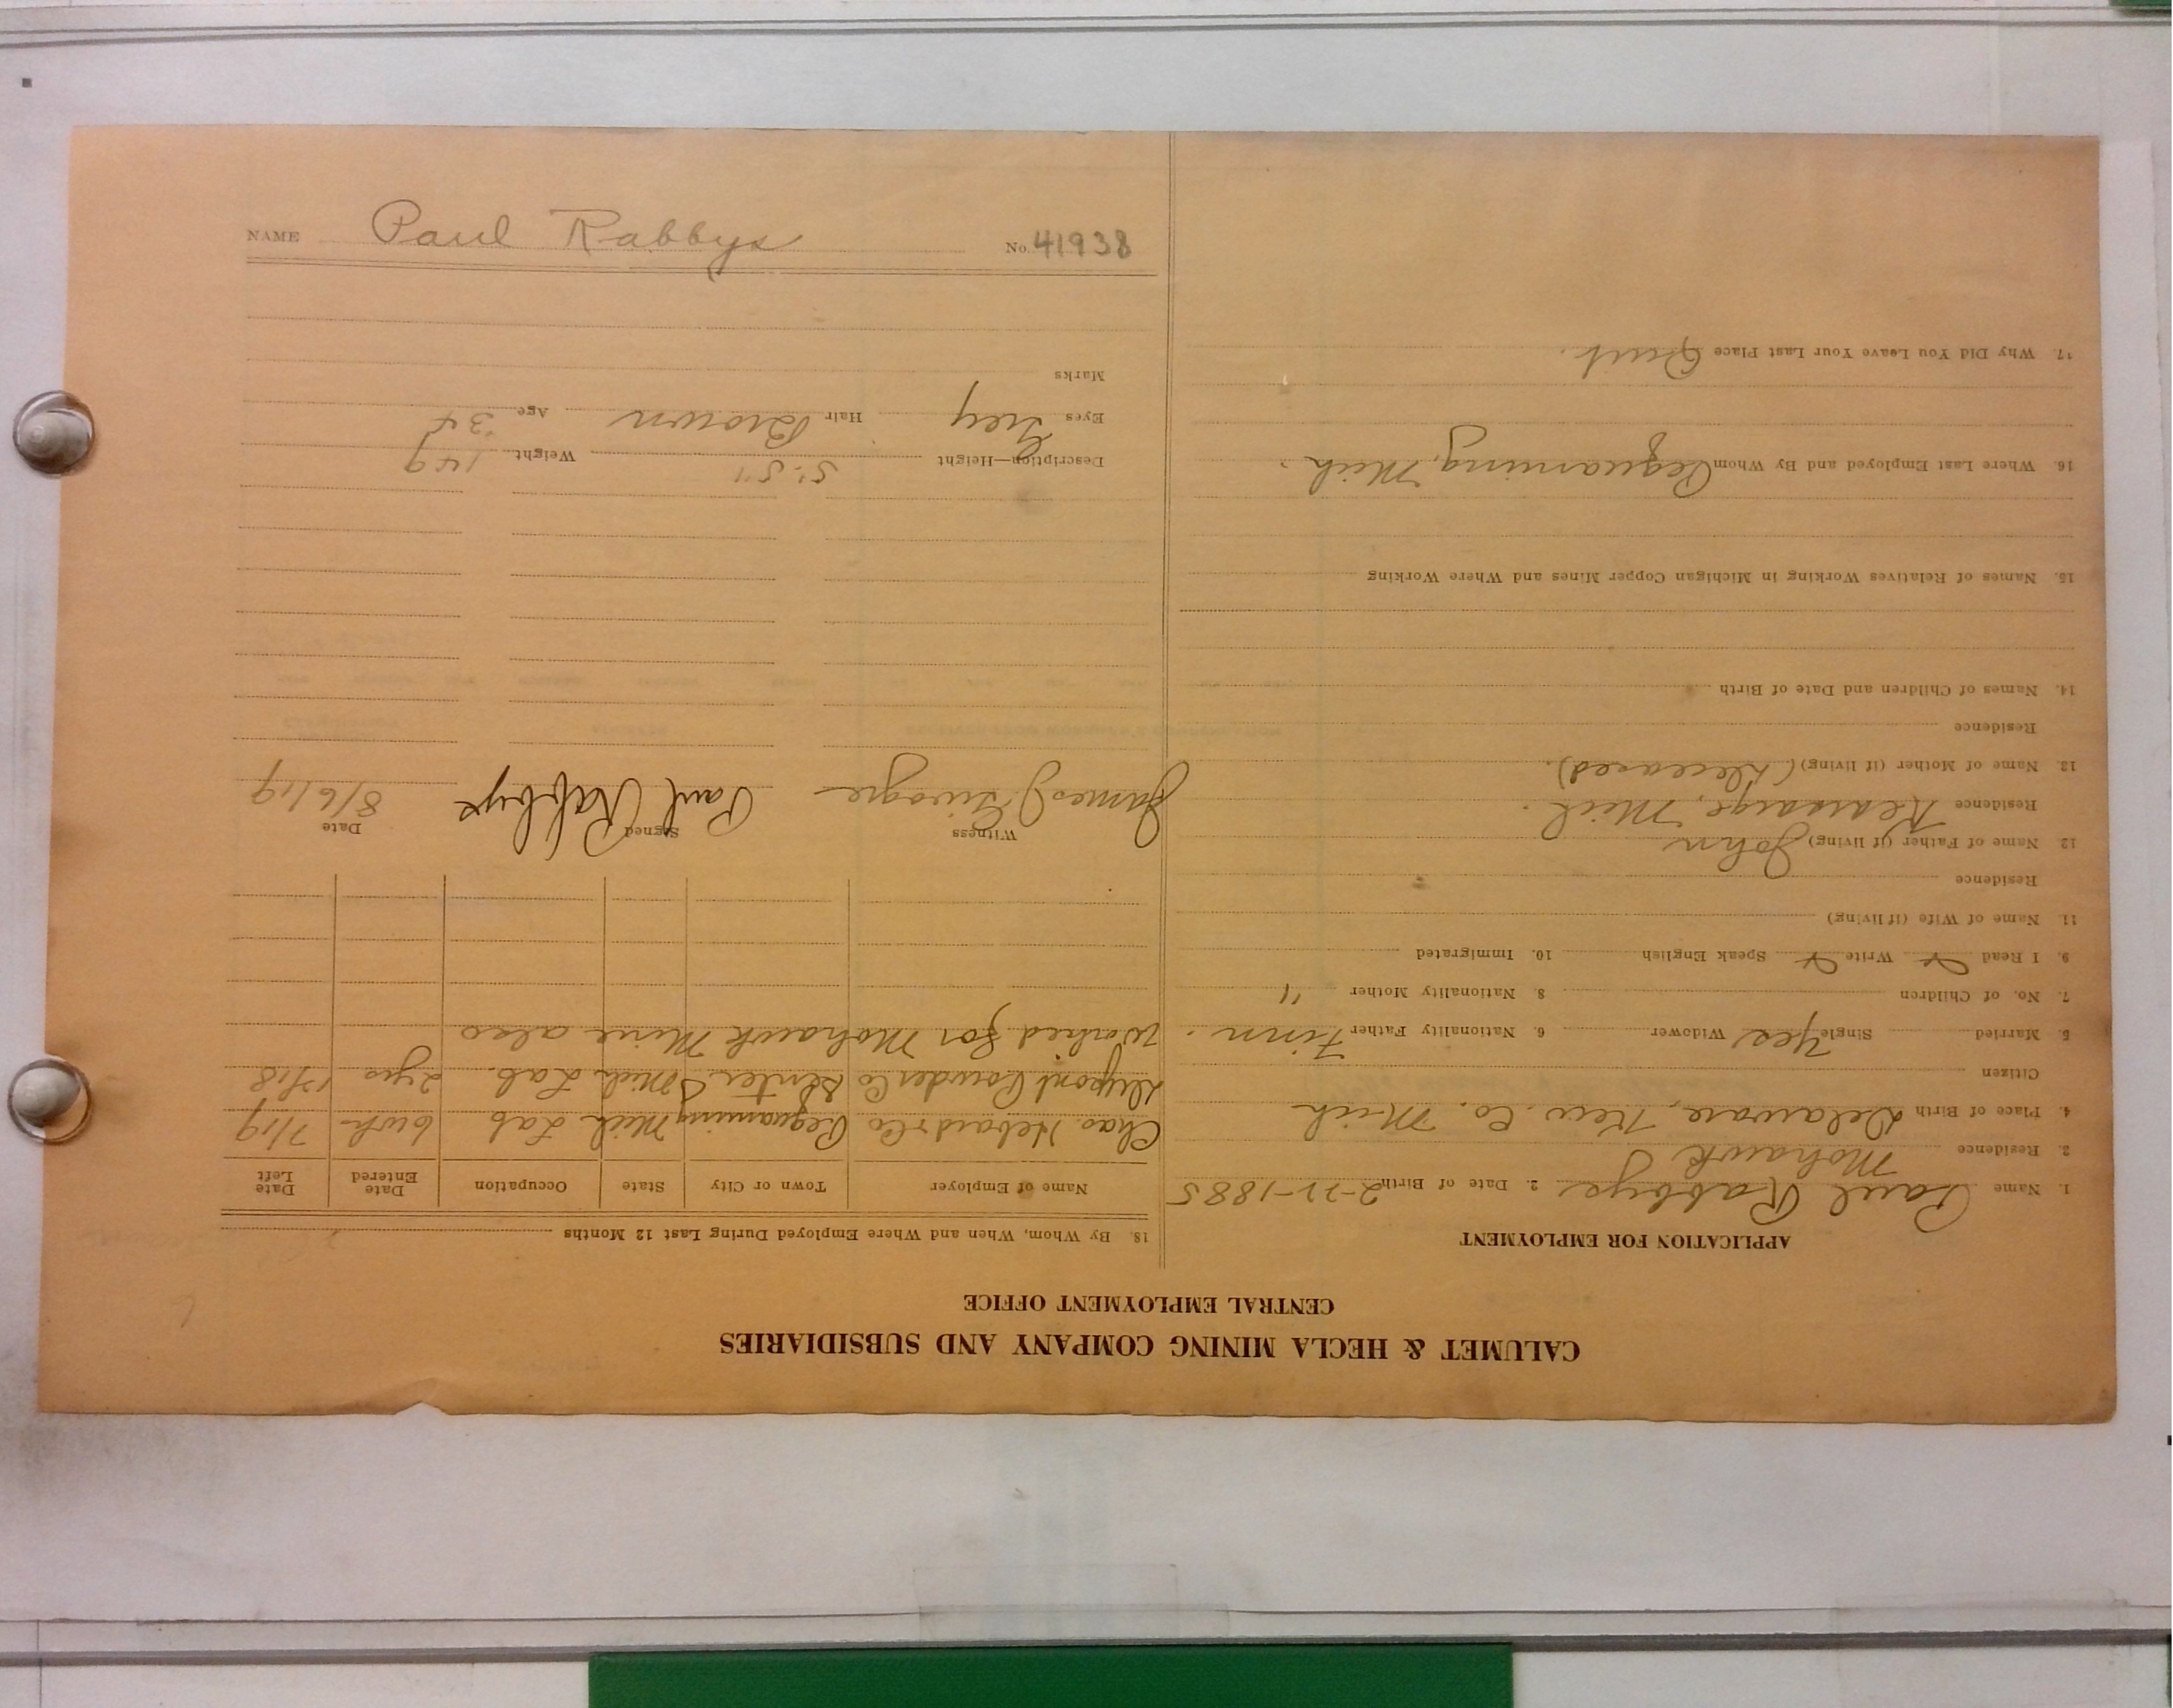 CALUMET & HECLA MINING COMPANY AND SUBSIDIARIES
CENTRAL EMPLOYMENT OFFICE
APPLICATION FOR EMPLOYMENT
1. Name Paul Rabbys 2. Date of Birth 2-22-1885
3. Residence Mohawk
4. Place of Birth Delaware, Kew. Co. Mich
Citizen
5. Married Single Yes Widower 6. Nationality Father Finn.
7. No. of Children 8. Nationality Mother "
9. I Read Write Speak English 10. Immigrated
11. Name of Wife (if living)
Residence
12. Name of Father (if living) John
Residence Kearsarge, Mich.
13. Name of Mother (if living) (Deceased).
Residence
14. Names of Children and Date of Birth
15. Names of Relatives Working in Michigan Copper Mines and Where Working
16. Where Last Employed and By Whom Pequaming, Mich.
17. Why Did You Leave Your Last Place Quit.
18. By Whom, When and Where Employed During Last 12 Months
Name of Employer Town or City State Occupation Date Entered Date Left
Chas. Hebard & Co Pequaming Mich Lab 6 wk 7/19
Dupont Powder Co Senter Mich Lab. 2 yrs 12/18
Worked for Mohawk Mine also
Witness Signed Date
James J. Paul Rabbys 8/6/19
Description—Height 5' 5" Weight 149
Eyes Grey Hair Brown Age 34
Marks
NAME Paul Rabbys No. 41938